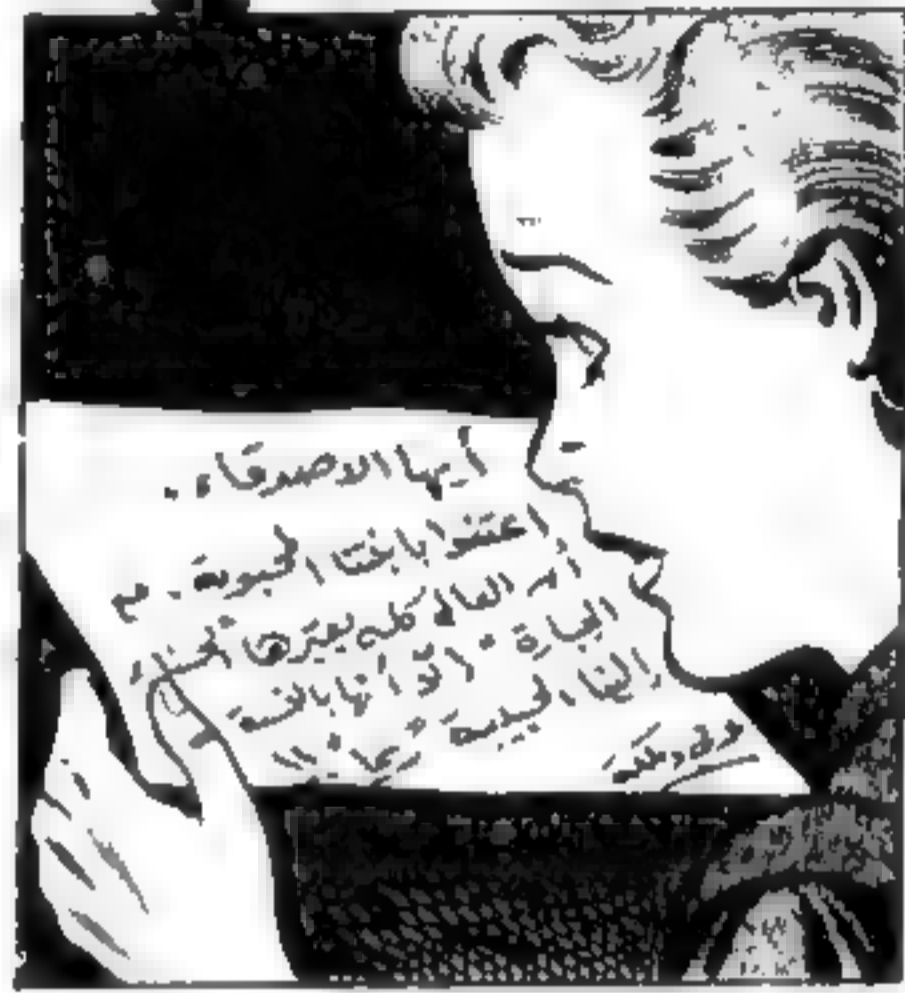 أيها الاصدقاء .
اعتنوا بابنتنا المحبوبة . مع
أن العالم كله يعتبرها "الحسناء
الجبارة" الا أنها بالنسبة
إلينا الحبيبة "ريما" !!